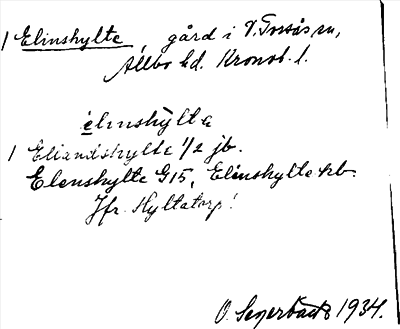 1 Elinshylte, gård i V. Torsås sn,
Allbo hd. Kronob. l.
èlinshỳlta
1 Eliandshylte 1/2 jb.
Elenshylte G15, Elinshylte kb.
Jfr. Hyltatorp!
O. Segerbäck 1934.